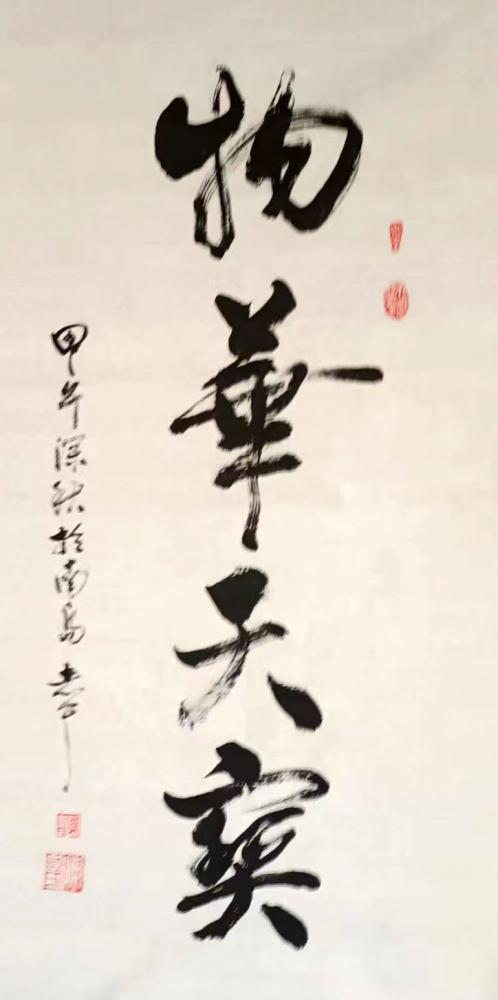 物華天寶
甲午深秋於南昌